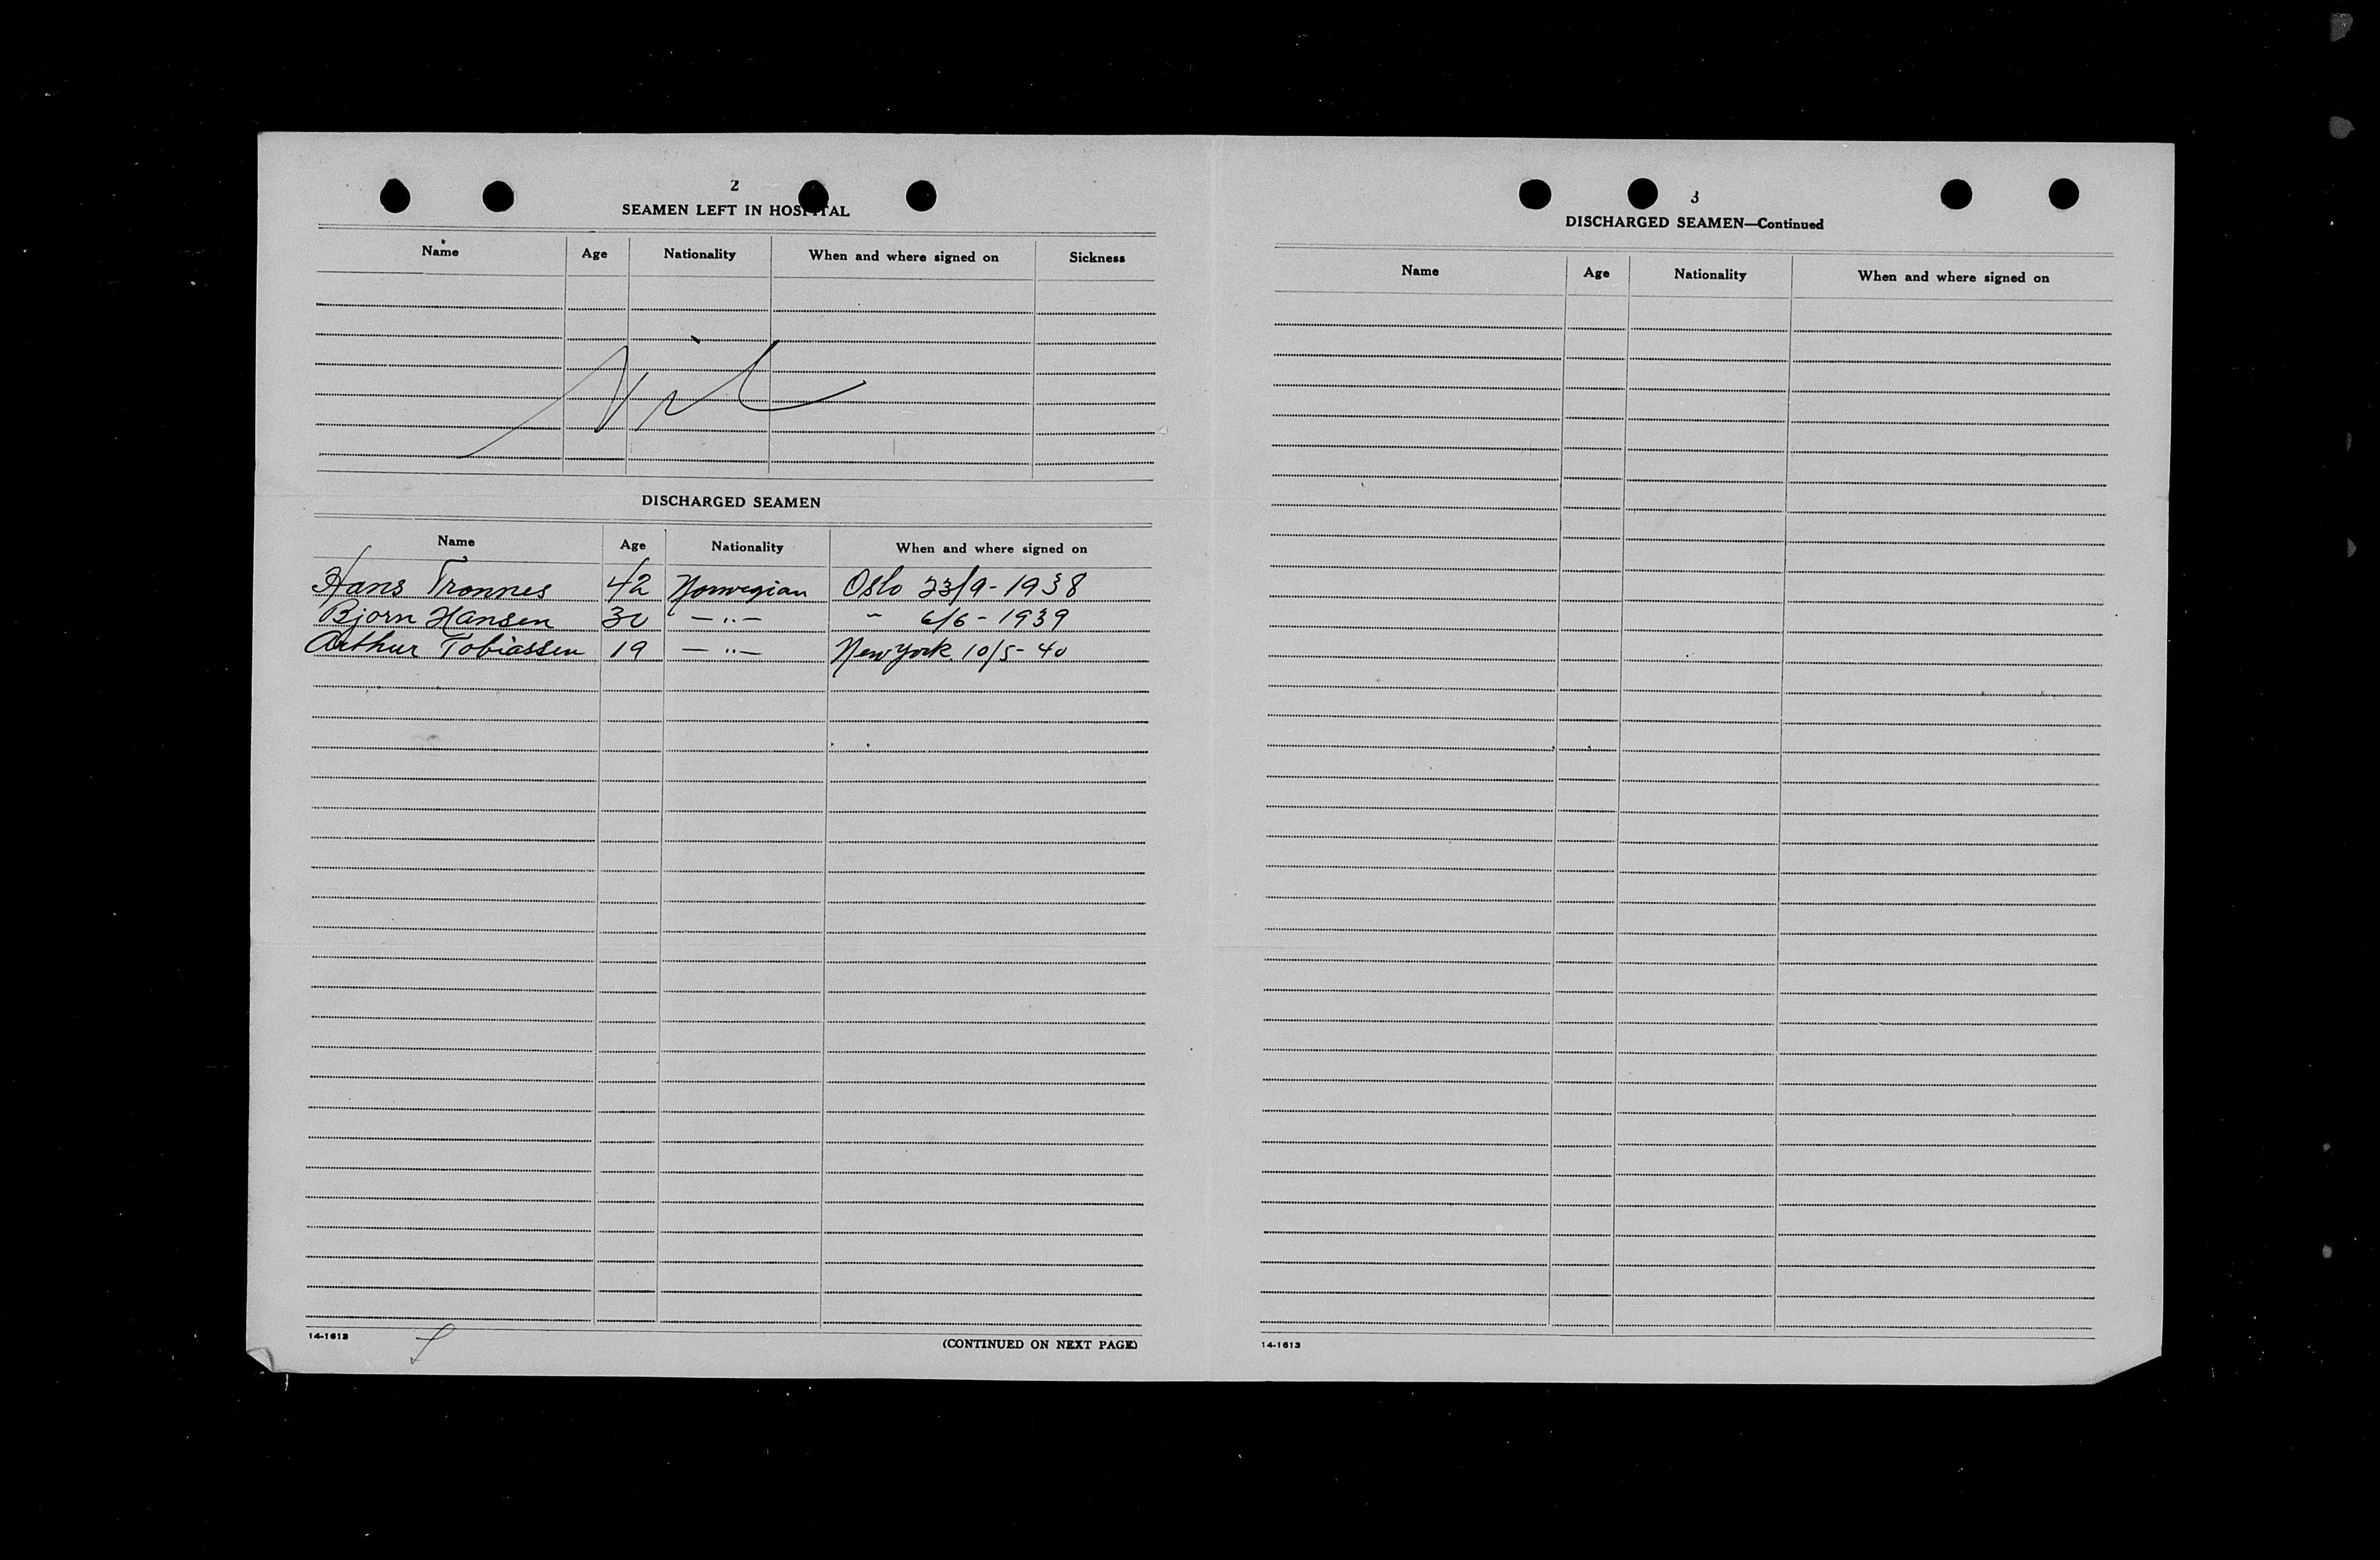 2
SEAMEN LEFT IN HOSPITAL
Name Age Nationality When and where signed on Sickness
Nil
DISCHARGED SEAMEN
Name Age Nationality When and where signed on
Hans Tronnes 42 Norwegian Oslo 23/9-1938
Bjorn Hansen 30 —"— " 6/6-1939
Arthur Tobiassen 19 —"— New York 10/5-40
14-1613 (CONTINUED ON NEXT PAGE)
3
DISCHARGED SEAMEN—Continued
Name Age Nationality When and where signed on
14-1613